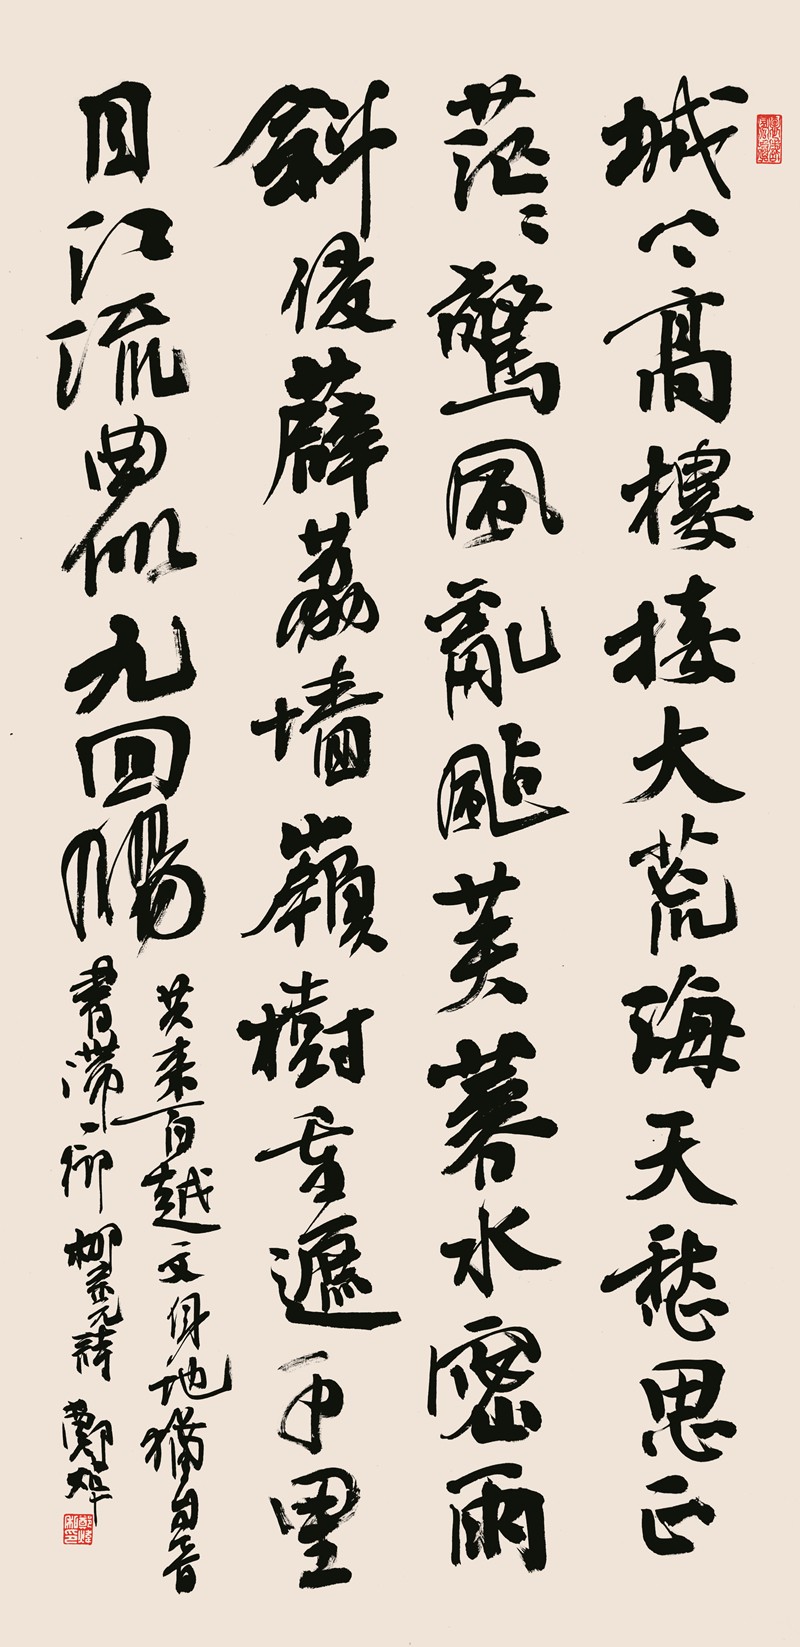 城上高樓接大荒海天愁思正
茫〻驚風亂颭芙蓉水密雨
斜侵薜荔墙嶺樹重遮千里
目江流曲似九回腸
共来百越文身地猶自音
書滯一鄉 柳宗元詩 鄭